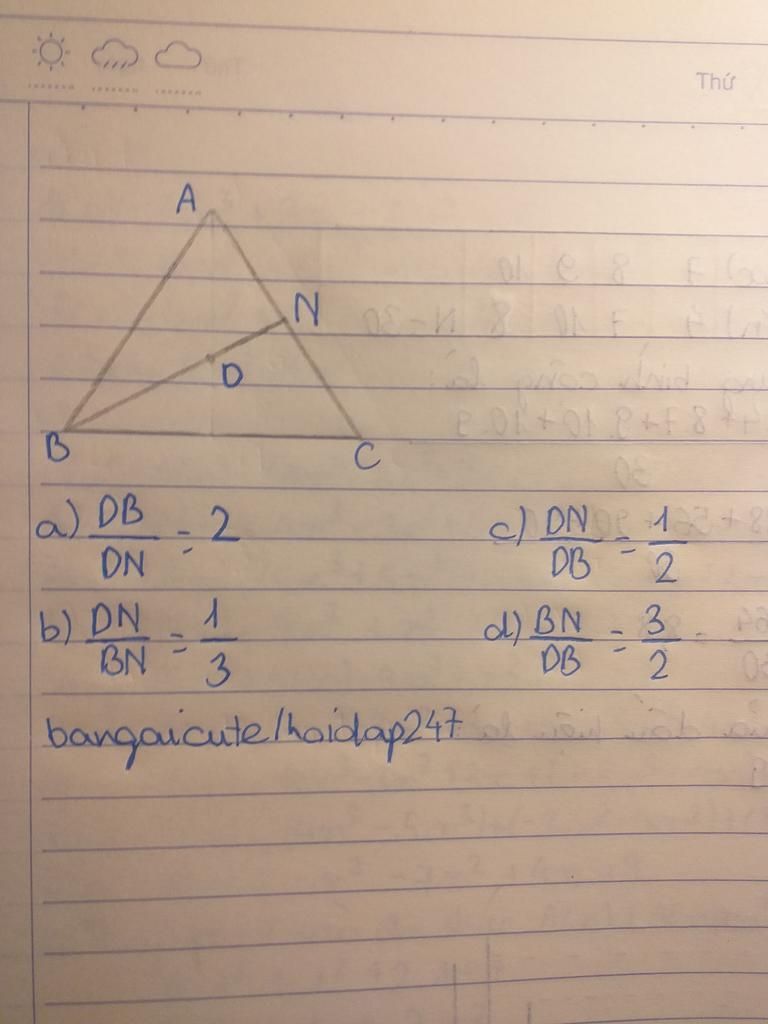 Thứ
A
N
D
B
C
a) DB/DN = 2
c) DN/DB = 1/2
b) DN/BN = 1/3
d) BN/DB = 3/2
bangaicute/hoidap247